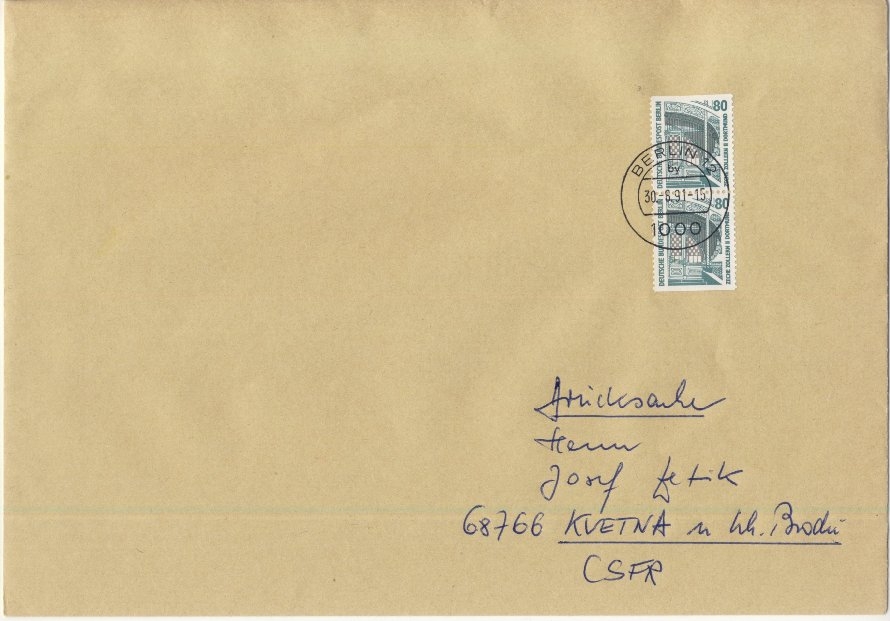 80
DEUTSCHE BUNDESPOST BERLIN
ZECHE ZOLLERN II DORTMUND
BERLIN 12
by
30.-8.91-15
1000
80
DEUTSCHE BUNDESPOST BERLIN
ZECHE ZOLLERN II DORTMUND
Drucksache
Herrn
Josef
68766 KVETNA u Uh. Brodu
CSFR